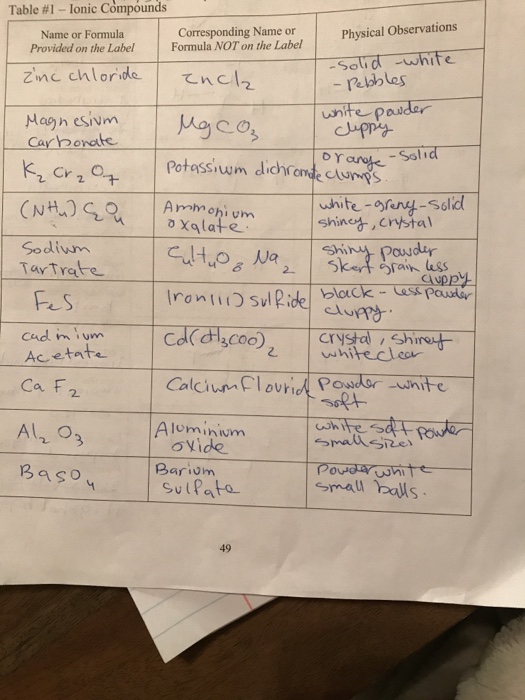 Table #1 – Ionic Compounds
Name or Formula
Provided on the Label
Corresponding Name or
Formula NOT on the Label
Physical Observations
Zinc chloride
ZnCl2
-solid -white
- Pebbles
Magnesium
Carbonate
MgCO3
white pawder
cluppy
K2 Cr2 O7
Potassium dichromate
orange -Solid
clumps
(NH4) C2O4
Ammonium
oxalate.
white -greny-Solid
shiney, crystal
Sodium
Tartrate
C4H4O6 Na2
Shiny powder
grain less
cluppy
FeS
Iron(II) sulfide
black - less pawder
cluppy.
cadmium
Acetate
Cd(CH3COO)2
crystal, shiney
white clear
Ca F2
Calcium Flourid
Powder -white
soft
Al2 O3
Aluminium
oxide
white soft powder
small sizes
BaSO4
Barium
sulfate
Powder white
small balls.
49